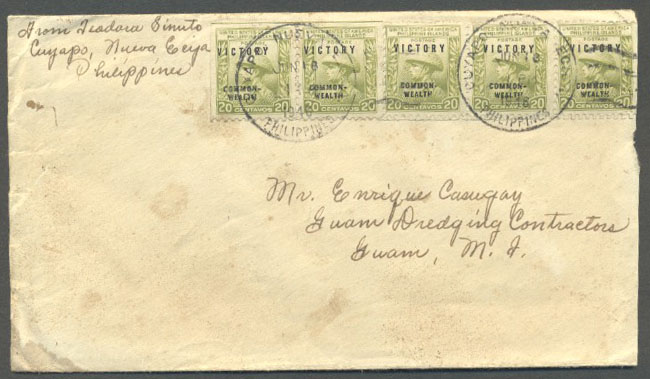 From Teodora Sinuto
Cuyapo, Nueva Ecija
Philippines
UNITED STATES OF AMERICA
PHILIPPINE ISLANDS
VICTORY
COMMON-
WEALTH
20 CENTAVOS 20
UNITED STATES OF AMERICA
PHILIPPINE ISLANDS
VICTORY
COMMON-
WEALTH
20 CENTAVOS 20
UNITED STATES OF AMERICA
PHILIPPINE ISLANDS
VICTORY
COMMON-
WEALTH
20 CENTAVOS 20
UNITED STATES OF AMERICA
PHILIPPINE ISLANDS
VICTORY
COMMON-
WEALTH
20 CENTAVOS 20
VICTORY
COMMON-
WEALTH
20 CENTAVOS
PHILIPPINES
CUYAPO
PHILIPPINES
Mr. Enrique Casugay
Guam Dredging Contractors
Guam, M. I.